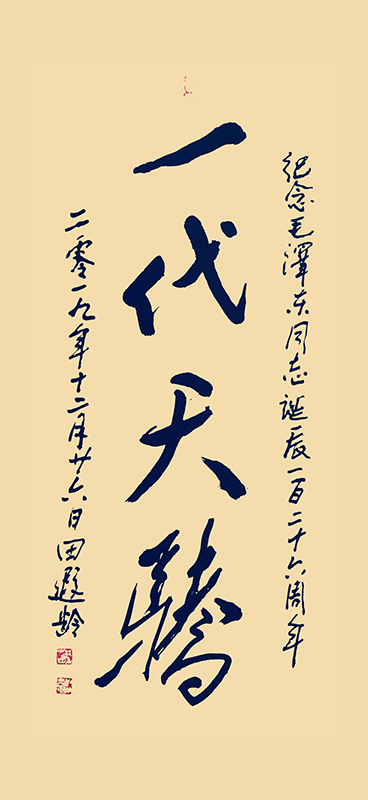 纪念毛泽东同志诞辰一百二十六周年
一代天骄
二零一九年十二月廿六日田遐龄